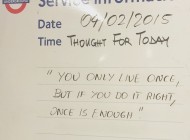 Service Information
Date 09/02/2015
Time THOUGHT FOR TODAY
"YOU ONLY LIVE ONCE,
BUT IF YOU DO IT RIGHT,
ONCE IS ENOUGH"